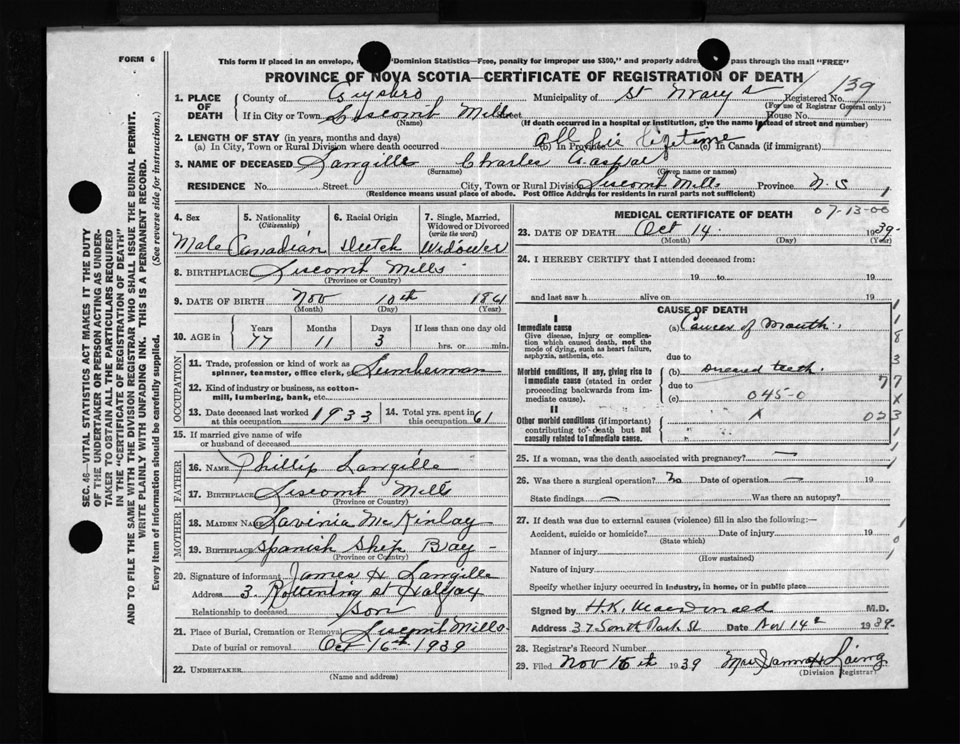 FORM 6
This form if placed in an envelope, "Dominion Statistics—Free, penalty for improper use $300," and properly pass through the mail "FREE"
PROVINCE OF NOVA SCOTIA—CERTIFICATE OF REGISTRATION OF DEATH
1. PLACE OF DEATH County of Guysboro Municipality of St Mary's Registered No. 139
(For use of Registrar General only)
If in City or Town Liscomb Mills Street House No.
(Name) (If death occurred in a hospital or institution, give the name instead of street and number)
2. LENGTH OF STAY (in years, months and days)
(a) In City, Town or Rural Division where death occurred (b) In Province All his lifetime (c) In Canada (if immigrant)
3. NAME OF DECEASED Langille Charles Gaspar
(Surname) (Given name or names)
RESIDENCE No. Street City, Town or Rural Division Liscomb Mills Province N. S 1
(Residence means usual place of abode. Post Office Address for residents in rural parts not sufficient)
4. Sex Male
5. Nationality (Citizenship) Canadian
6. Racial Origin Dutch
7. Single, Married, Widowed or Divorced (write the word) Widower
8. BIRTHPLACE Liscomb Mills
(Province or Country)
9. DATE OF BIRTH Nov 10th 1861
(Month) (Day) (Year)
10. AGE in Years Months Days If less than one day old
77 11 3 hrs. or min.
OCCUPATION
11. Trade, profession or kind of work as spinner, teamster, office clerk, etc. Lumberman
12. Kind of industry or business, as cotton-mill, lumbering, bank, etc.
13. Date deceased last worked at this occupation 1933
14. Total yrs. spent in this occupation 61
15. If married give name of wife or husband of deceased
FATHER
16. NAME Phillip Langille
17. BIRTHPLACE Liscomb Mills
(Province or Country)
MOTHER
18. MAIDEN NAME Lavinia McKinlay
19. BIRTHPLACE Spanish Ship Bay
(Province or Country)
20. Signature of informant James H Langille
Address 3 St Halifax
Relationship to deceased Son
21. Place of Burial, Cremation or Removal Liscomb Mills
Date of burial or removal Oct 16th 1939
22. UNDERTAKER
(Name and address)
MEDICAL CERTIFICATE OF DEATH 07-13-00
23. DATE OF DEATH Oct 14 1939
(Month) (Day) (Year)
24. I HEREBY CERTIFY that I attended deceased from:
19 to 19
and last saw h alive on 19
CAUSE OF DEATH
I
Immediate cause
Give disease, injury or complication which caused death, not the mode of dying, such as heart failure, asphyxia, asthenia, etc.
(a) Cancer of Mouth
due to
Morbid conditions, if any, giving rise to immediate cause (stated in order proceeding backwards from immediate cause).
(b) Diseased teeth
due to
(c) 045-0
II
Other morbid conditions (if important) contributing to death but not causally related to immediate cause.
1
1
8
3
77
X
023
1
1
25. If a woman, was the death associated with pregnancy? —
26. Was there a surgical operation? No Date of operation — 19
State findings — Was there an autopsy?
27. If death was due to external causes (violence) fill in also the following:—
Accident, suicide or homicide? Date of injury 19
(State which)
Manner of injury
(How sustained)
Nature of injury
Specify whether injury occurred in industry, in home, or in public place
Signed by H.K. MacDonald M.D.
Address 37 South Park St Date Nov 14th 1939
28. Registrar's Record Number
29. Filed Nov 1939
(Division Registrar)
SEC. 46—VITAL STATISTICS ACT MAKES IT THE DUTY
OF THE UNDERTAKER OR PERSON ACTING AS UNDER-
TAKER TO OBTAIN ALL THE PARTICULARS REQUIRED
IN THE "CERTIFICATE OF REGISTRATION OF DEATH"
AND TO FILE THE SAME WITH THE DIVISION REGISTRAR WHO SHALL ISSUE THE BURIAL PERMIT.
WRITE PLAINLY WITH UNFADING INK. THIS IS A PERMANENT RECORD.
Every item of information should be carefully supplied. (See reverse side for instructions.)